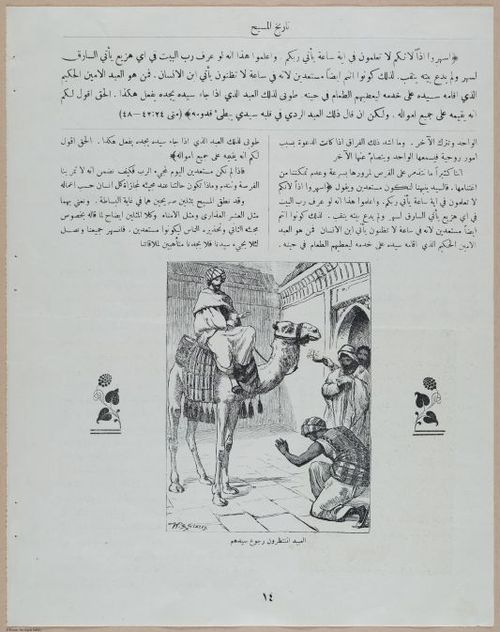 تاريخ المسيح
﴿اسهروا اذاً لانكم لا تعلمون في اية ساعة يأتي ربكم . واعلموا هذا انه لو عرف رب البيت في اي هزيع يأتي السارق
لسهر ولم يدع بيته ينقب . لذلك كونوا انتم ايضاً مستعدين لانه في ساعة لا تظنون يأتي ابن الانسان . فمن هو العبد الامين الحكيم
الذي اقامه سيده على خدمه ليعطيهم الطعام في حينه . طوبى لذلك العبد الذي اذا جاء سيده يجده يفعل هكذا . الحق اقول لكم
انه يقيمه على جميع امواله . ولكن ان قال ذلك العبد الردي في قلبه سيدي يبطئ قدومه﴾ (متى ٢٤:٤٢–٤٨)
الواحد ونترك الآخر . وما اشد ذلك الفراق اذا كانت الدعوة بسبب
امور روحية فيسمعها الواحد ويتصام عنها الآخر
اننا كثيراً ما نتندم على الفرص لمرورها بسرعة وعدم تمكننا من
اغتنامها . فالسيد ينبهنا لنكون مستعدين ويقول ﴿اسهروا اذاً لانكم
لا تعلمون في اية ساعة يأتي ربكم . واعلموا هذا انه لو عرف رب البيت
في اي هزيع يأتي السارق لسهر ولم يدع بيته ينقب . لذلك كونوا انتم
ايضاً مستعدين لانه في ساعة لا تظنون يأتي ابن الانسان فمن هو العبد
الامين الحكيم الذي اقامه سيده على خدمه ليعطيهم الطعام في حينه .
طوبى لذلك العبد الذي اذا جاء سيده يجده يفعل هكذا . الحق اقول
لكم انه يقيمه على جميع امواله﴾
فاذا لم نكن مستعدين اليوم لمجيء الرب فكيف نضمن انه لا تمر بنا
الفرصة ونندم وماذا تكون حالتنا عند مجيئه لمجازاة كل انسان حسب اعماله
وقد نطق المسيح بمثلين صريحين هما في غاية البساطة . ونعني بهما
مثل العشر العذارى ومثل الامناء وكلا المثلين ايضاح لما قاله بخصوص
مجيئه الثاني وتحذيره الناس ليكونوا مستعدين . فلنسهر جميعنا ونصل
لئلا يجيء سيدنا فلا يجدنا متأهبين للاقاتنا
العبيد المنتظرون رجوع سيدهم
١٤